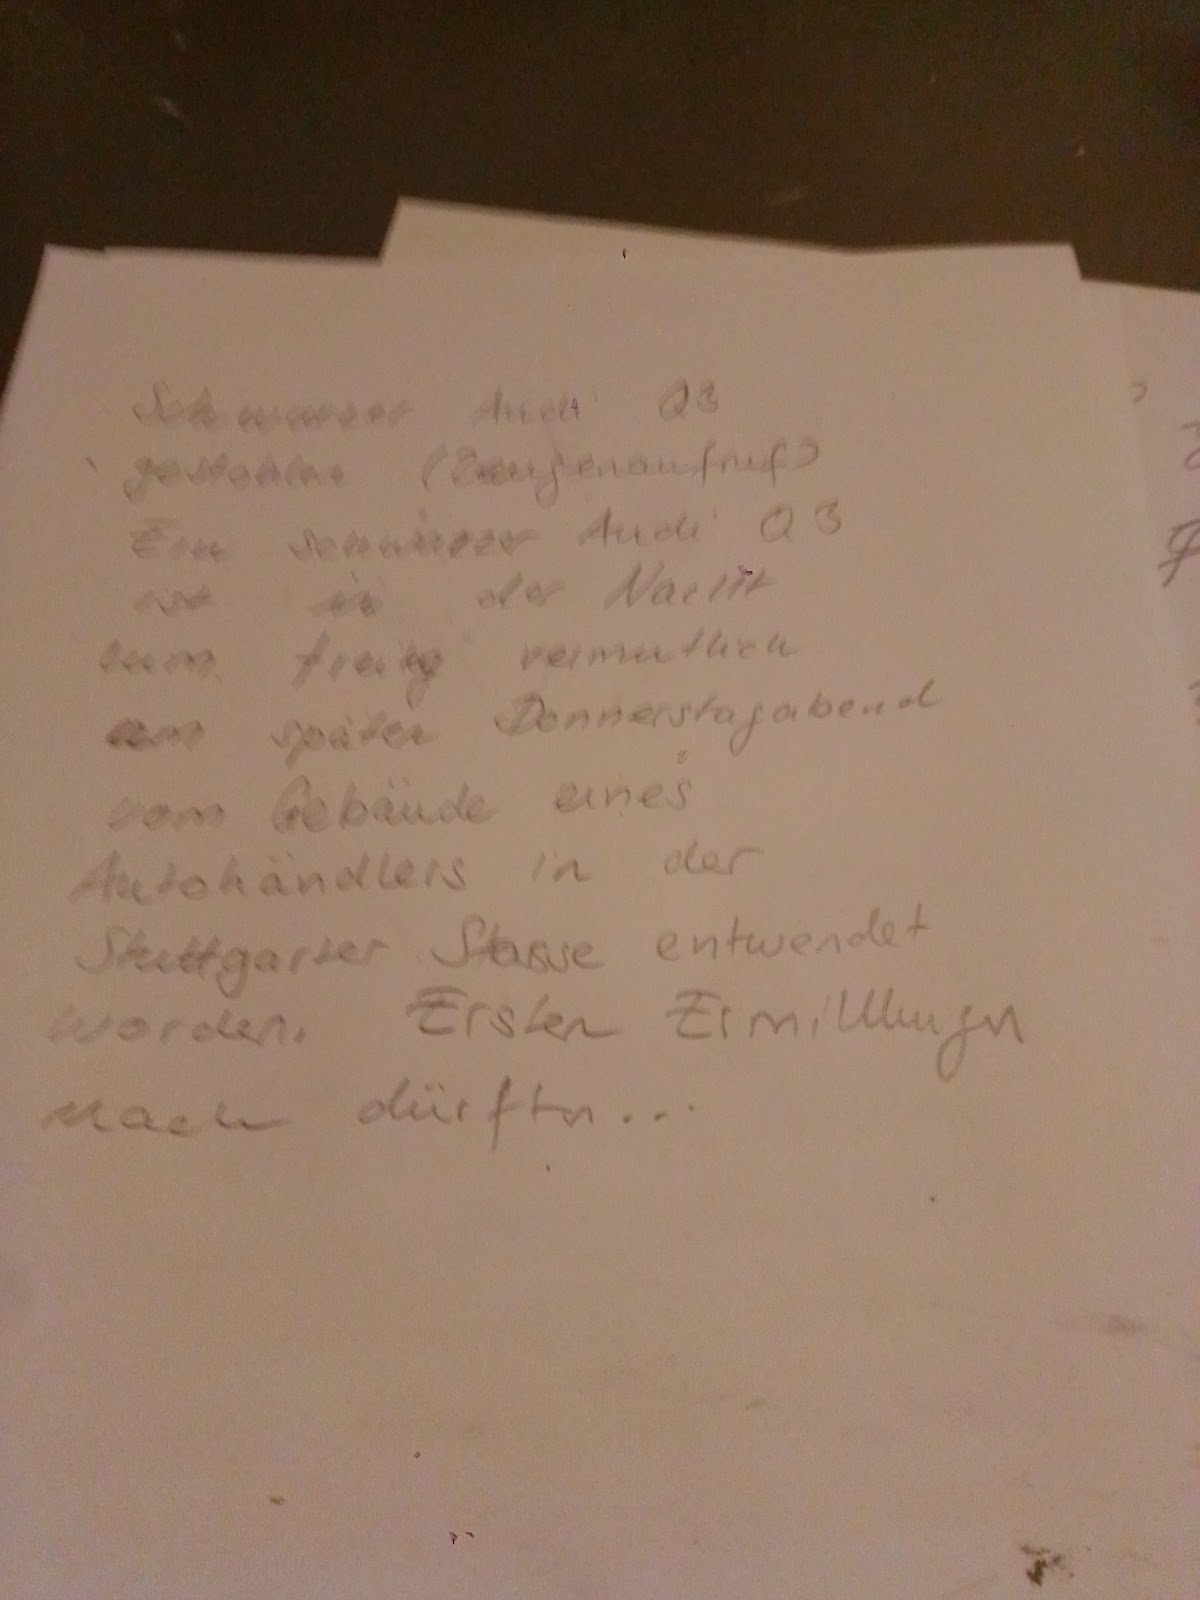 Schwarzer Audi Q3
gestohlen (Zeugenaufruf)
Ein schwarzer Audi Q3
ist in der Nacht
zum freitg vermutlich
am späten Donnerstagabend
vom Gebäude eines
Autohändlers in der
Stuttgarter Stasse entwendet
worden. Ersten Ermittlungen
nach dürften...